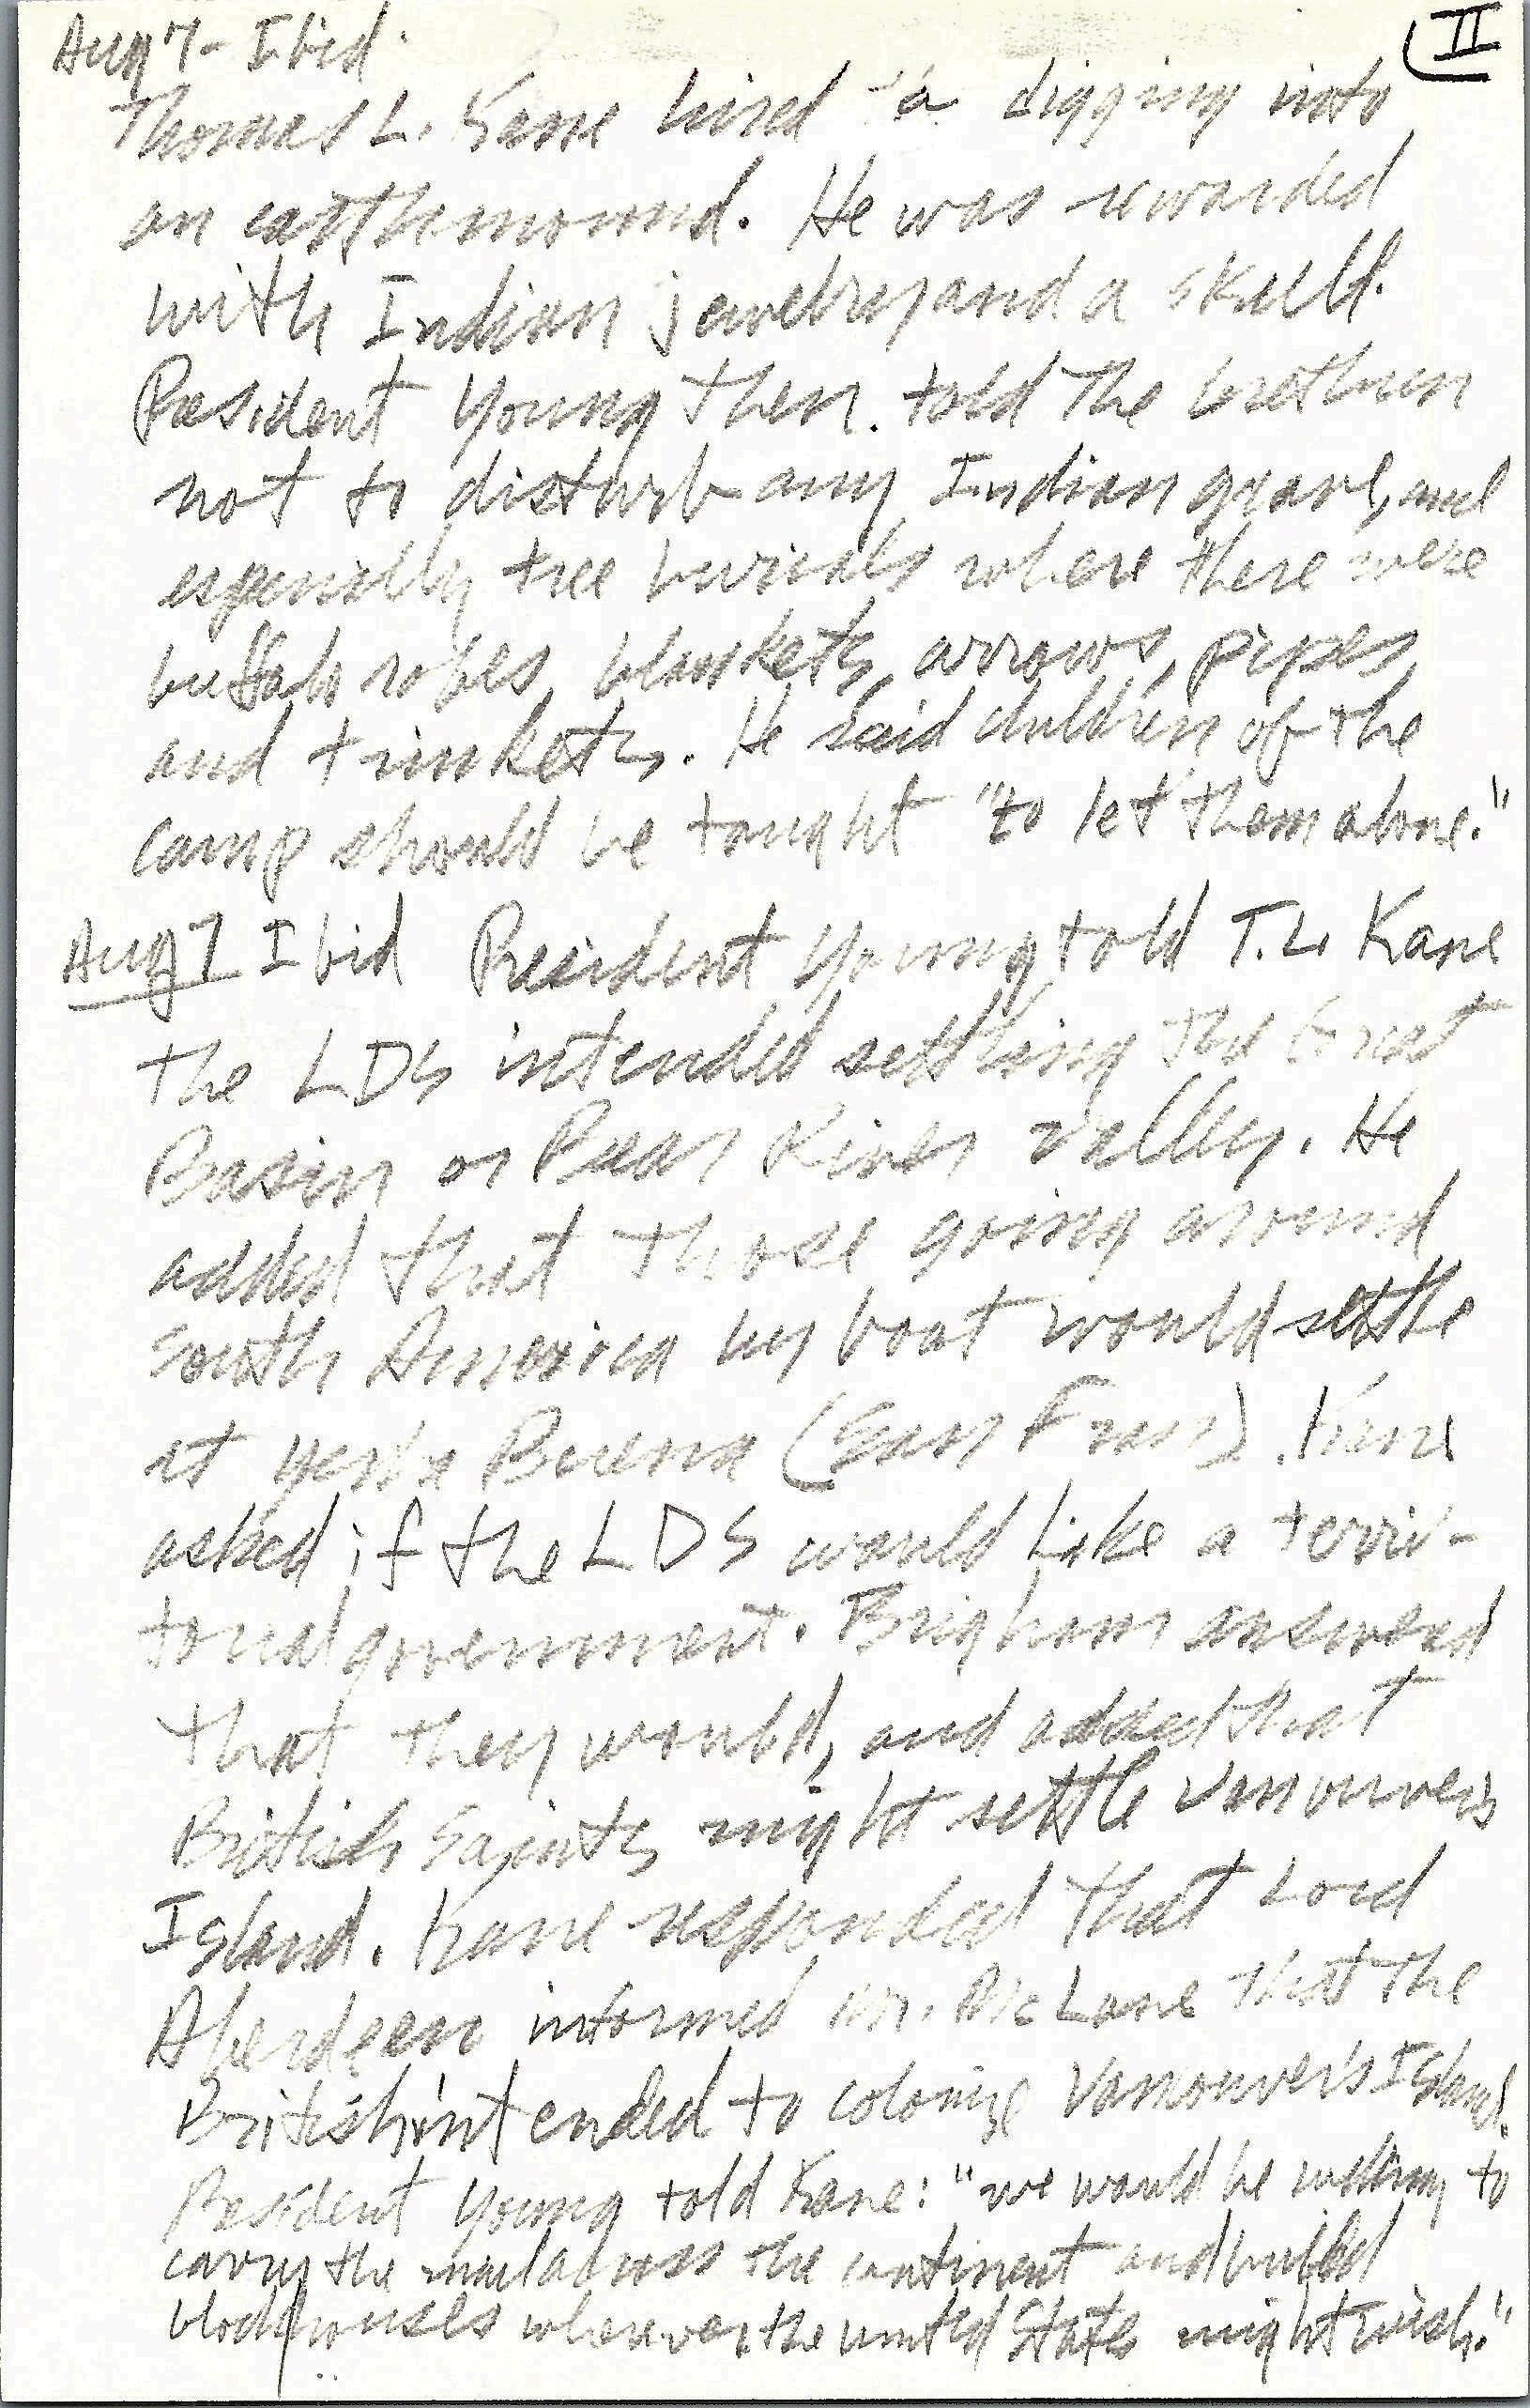 Aug 7 - Ibid.
II
Thomas L. Kane hired a digging into
an earthmound. He was rewarded
with Indian jewelry and a skull.
President Young then. told the brethren
not to disturb any Indian grave, and
especially tree burials where there were
buffalo robes, blankets, arrows, pipes,
and trinkets. He said children of the
camp should be taught "to let them alone."
Aug 7 Ibid President Young told T. L. Kane
the LDS intended settling the Great
Basin or Bear River Valley. He
added that those going around
South America by boat would settle
at Yerba Buena (San Fran). Kane
asked if the LDS would like a terri-
torial government. Brigham answered
that they would, and added that
British Saints might settle Vancouver's
Island. Kane responded that Lord
Aberdeen informed Mr. McLane that the
British intended to colonize Vancouver's Island.
President Young told Kane: "we would be willing to
carry the mail across the continent and build
blockhouses wherever the United States might wish."